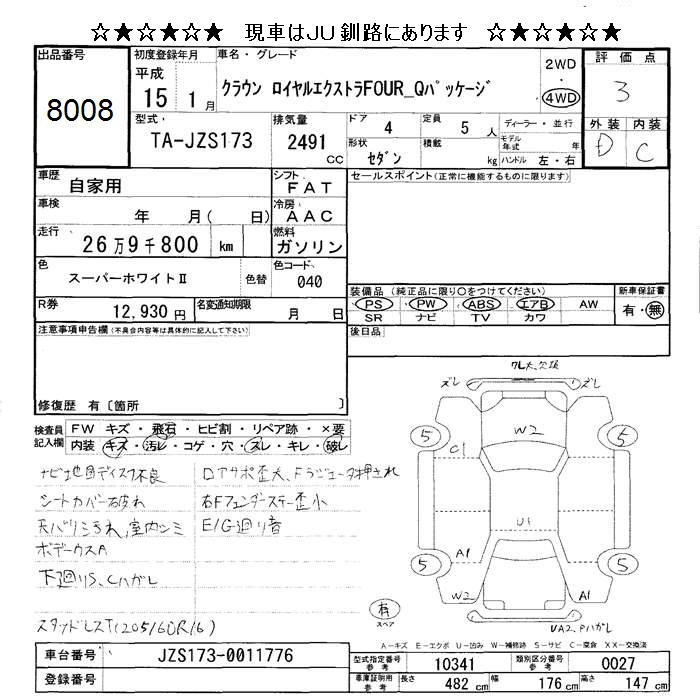 ☆★☆★☆★ 現車はJU釧路にあります ☆★☆★☆★
出品番号 8008
初度登録年月 平成 15 1月
車名・グレード クラウン ロイヤルエクストラFOUR_Qパッケージ
2WD 4WD
評価点 3
外装 D 内装 C
型式: TA-JZS173
排気量 2491 CC
ドア 4 定員 5 人
形状 セダン 積載 kg
ディーラー・並行
モデル年式 年
ハンドル 左・右
車歴 自家用
シフト FAT
セールスポイント(正常に機能するものに限ります)
車検 年 月( 日)
冷房 AAC
走行 26万9千800 km
燃料 ガソリン
色 スーパーホワイトⅡ 色替
色コード 040
装備品(純正品に限り○をつけてください)
PS PW ABS エアB AW
SR ナビ TV カワ
新車保証書 有・無
R券 12,930円
名変通知期限 月 日
後日品
注意事項申告欄(不具合内容等は具体的に記入して下さい)
修復歴 有〔箇所 〕
検査員記入欄
FW キズ・飛石・ヒビ割・リペア跡・×要
内装 キズ・汚レ・コゲ・穴・スレ・キレ・破レ
ナビ地図ディスク不良
シートカバー破れ
天バリ汚れ,室内シミ
ボデーカスA
下廻りS、Cハガレ
スタッドレスT(205/60R16)
ロアサポ歪大、Fラジエータ押され
右Fフェンダーステー歪小
E/G廻り音
グレ大、欠損
ズレ ズレ
5 5
W2
C1
U1
A1
5 5
W2 A1
有 スペア
UA2、Pハガレ
A－キズ E－エクボ U－凹み W－補修跡 S－サビ C－腐食 XX－交換済
車台番号 JZS173-0011776
型式指定番号 参考 10341
類別区分番号 参考 0027
登録番号
車庫証明用 参考 長さ 482 cm 幅 176 cm 高さ 147 cm